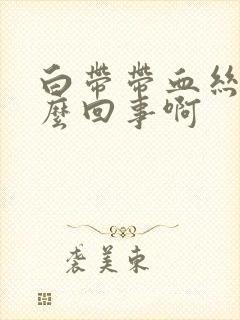 白帶帶血絲
麼回事啊
裘美東